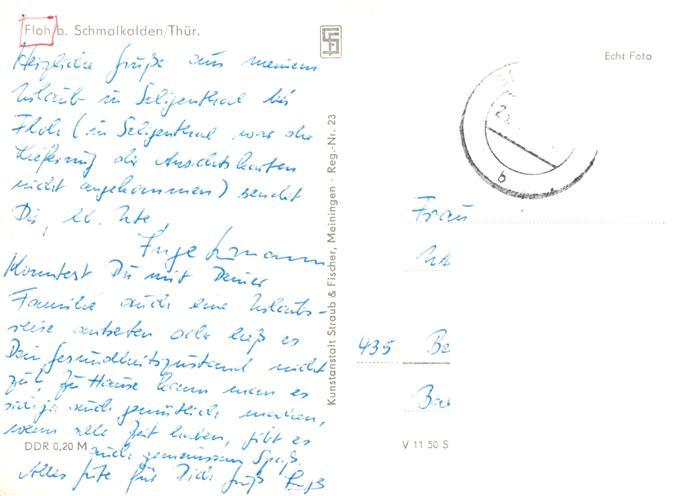 Floh b. Schmalkalden/Thür.
Herzliche Grüße aus meinem
Urlaub in Seligenthal bei
Floh (in Seligenthal war die
Lieferung der Ansichtskarten
nicht angekommen) sendet
Dir, lb. Ute,
Inge
Konntest Du mit Deiner
Familie auch eine Urlaubs-
reise antreten oder ließ es
Dein Gesundheitszustand nicht
zu? Zu Hause kann man es
sich ja auch gemütlich machen,
wenn alle Zeit haben, gibt es
auch gemeinsam Spaß.
Alles Gute für Dich
DDR 0,20 M
Kunstanstalt Straub & Fischer, Meiningen · Reg.-Nr. 23
Echt Foto
b
Frau
435 Be
V 11 50 S